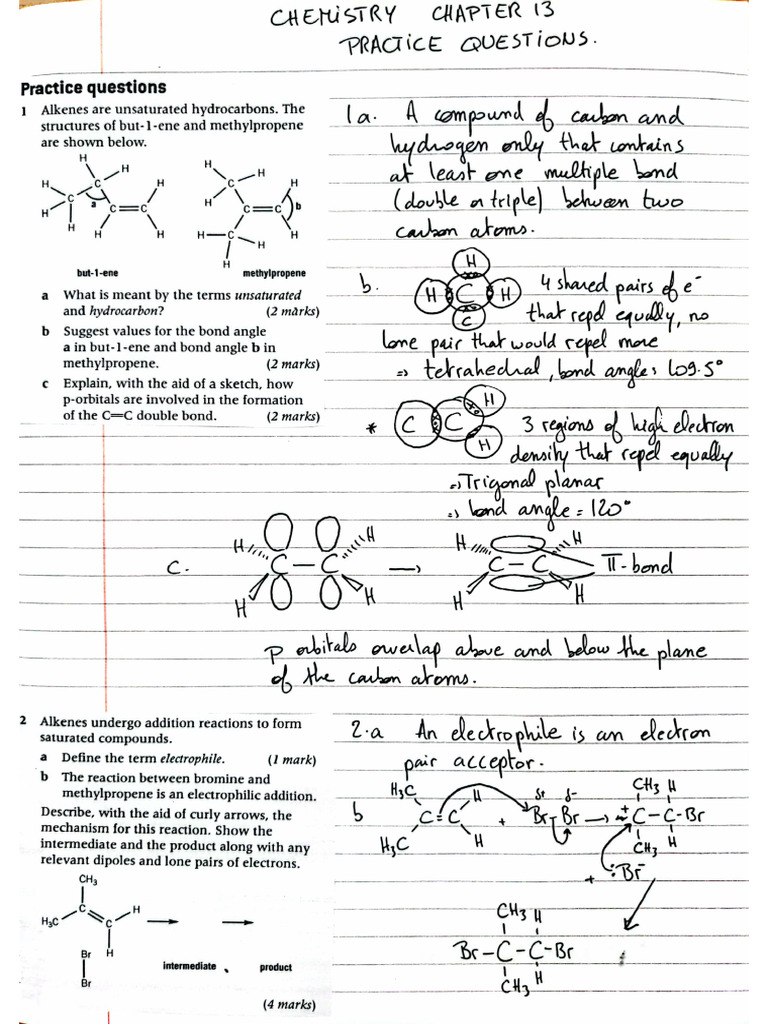 CHEMISTRY CHAPTER 13
PRACTICE QUESTIONS.
Practice questions
1 Alkenes are unsaturated hydrocarbons. The
structures of but-1-ene and methylpropene
are shown below.
H
H
C
H
H
C
a
C
C
H
H
H
H
H
H
C
H
H
C
C
b
H
H
H
C
H
H
but-1-ene
methylpropene
a What is meant by the terms unsaturated
and hydrocarbon? (2 marks)
b Suggest values for the bond angle
a in but-1-ene and bond angle b in
methylpropene. (2 marks)
c Explain, with the aid of a sketch, how
p-orbitals are involved in the formation
of the C=C double bond. (2 marks)
1a. A compound of carbon and
hydrogen only that contains
at least one multiple bond
(double or triple) between two
carbon atoms.
b. H
H C H
C
4 shared pairs of e-
that repel equally, no
lone pair that would repel more
=> tetrahedral, bond angle: 109.5°
* C C H
H
3 regions of high electron
density that repel equally
=> Trigonal planar
=> bond angle = 120°
c. H H
C - C
H H
→
H H
C - C
H H
π-bond
p orbitals overlap above and below the plane
of the carbon atoms.
2 Alkenes undergo addition reactions to form
saturated compounds.
a Define the term electrophile. (1 mark)
b The reaction between bromine and
methylpropene is an electrophilic addition.
Describe, with the aid of curly arrows, the
mechanism for this reaction. Show the
intermediate and the product along with any
relevant dipoles and lone pairs of electrons.
CH3
C
H3C
C
H
H
Br
Br
intermediate
product
(4 marks)
2.a An electrophile is an electron
pair acceptor.
b H3C H
C=C
H3C H
+
δ+ δ-
Br-Br
→
CH3 H
+C-C-Br
CH3 H
+ :Br-
CH3 H
Br-C-C-Br
CH3 H